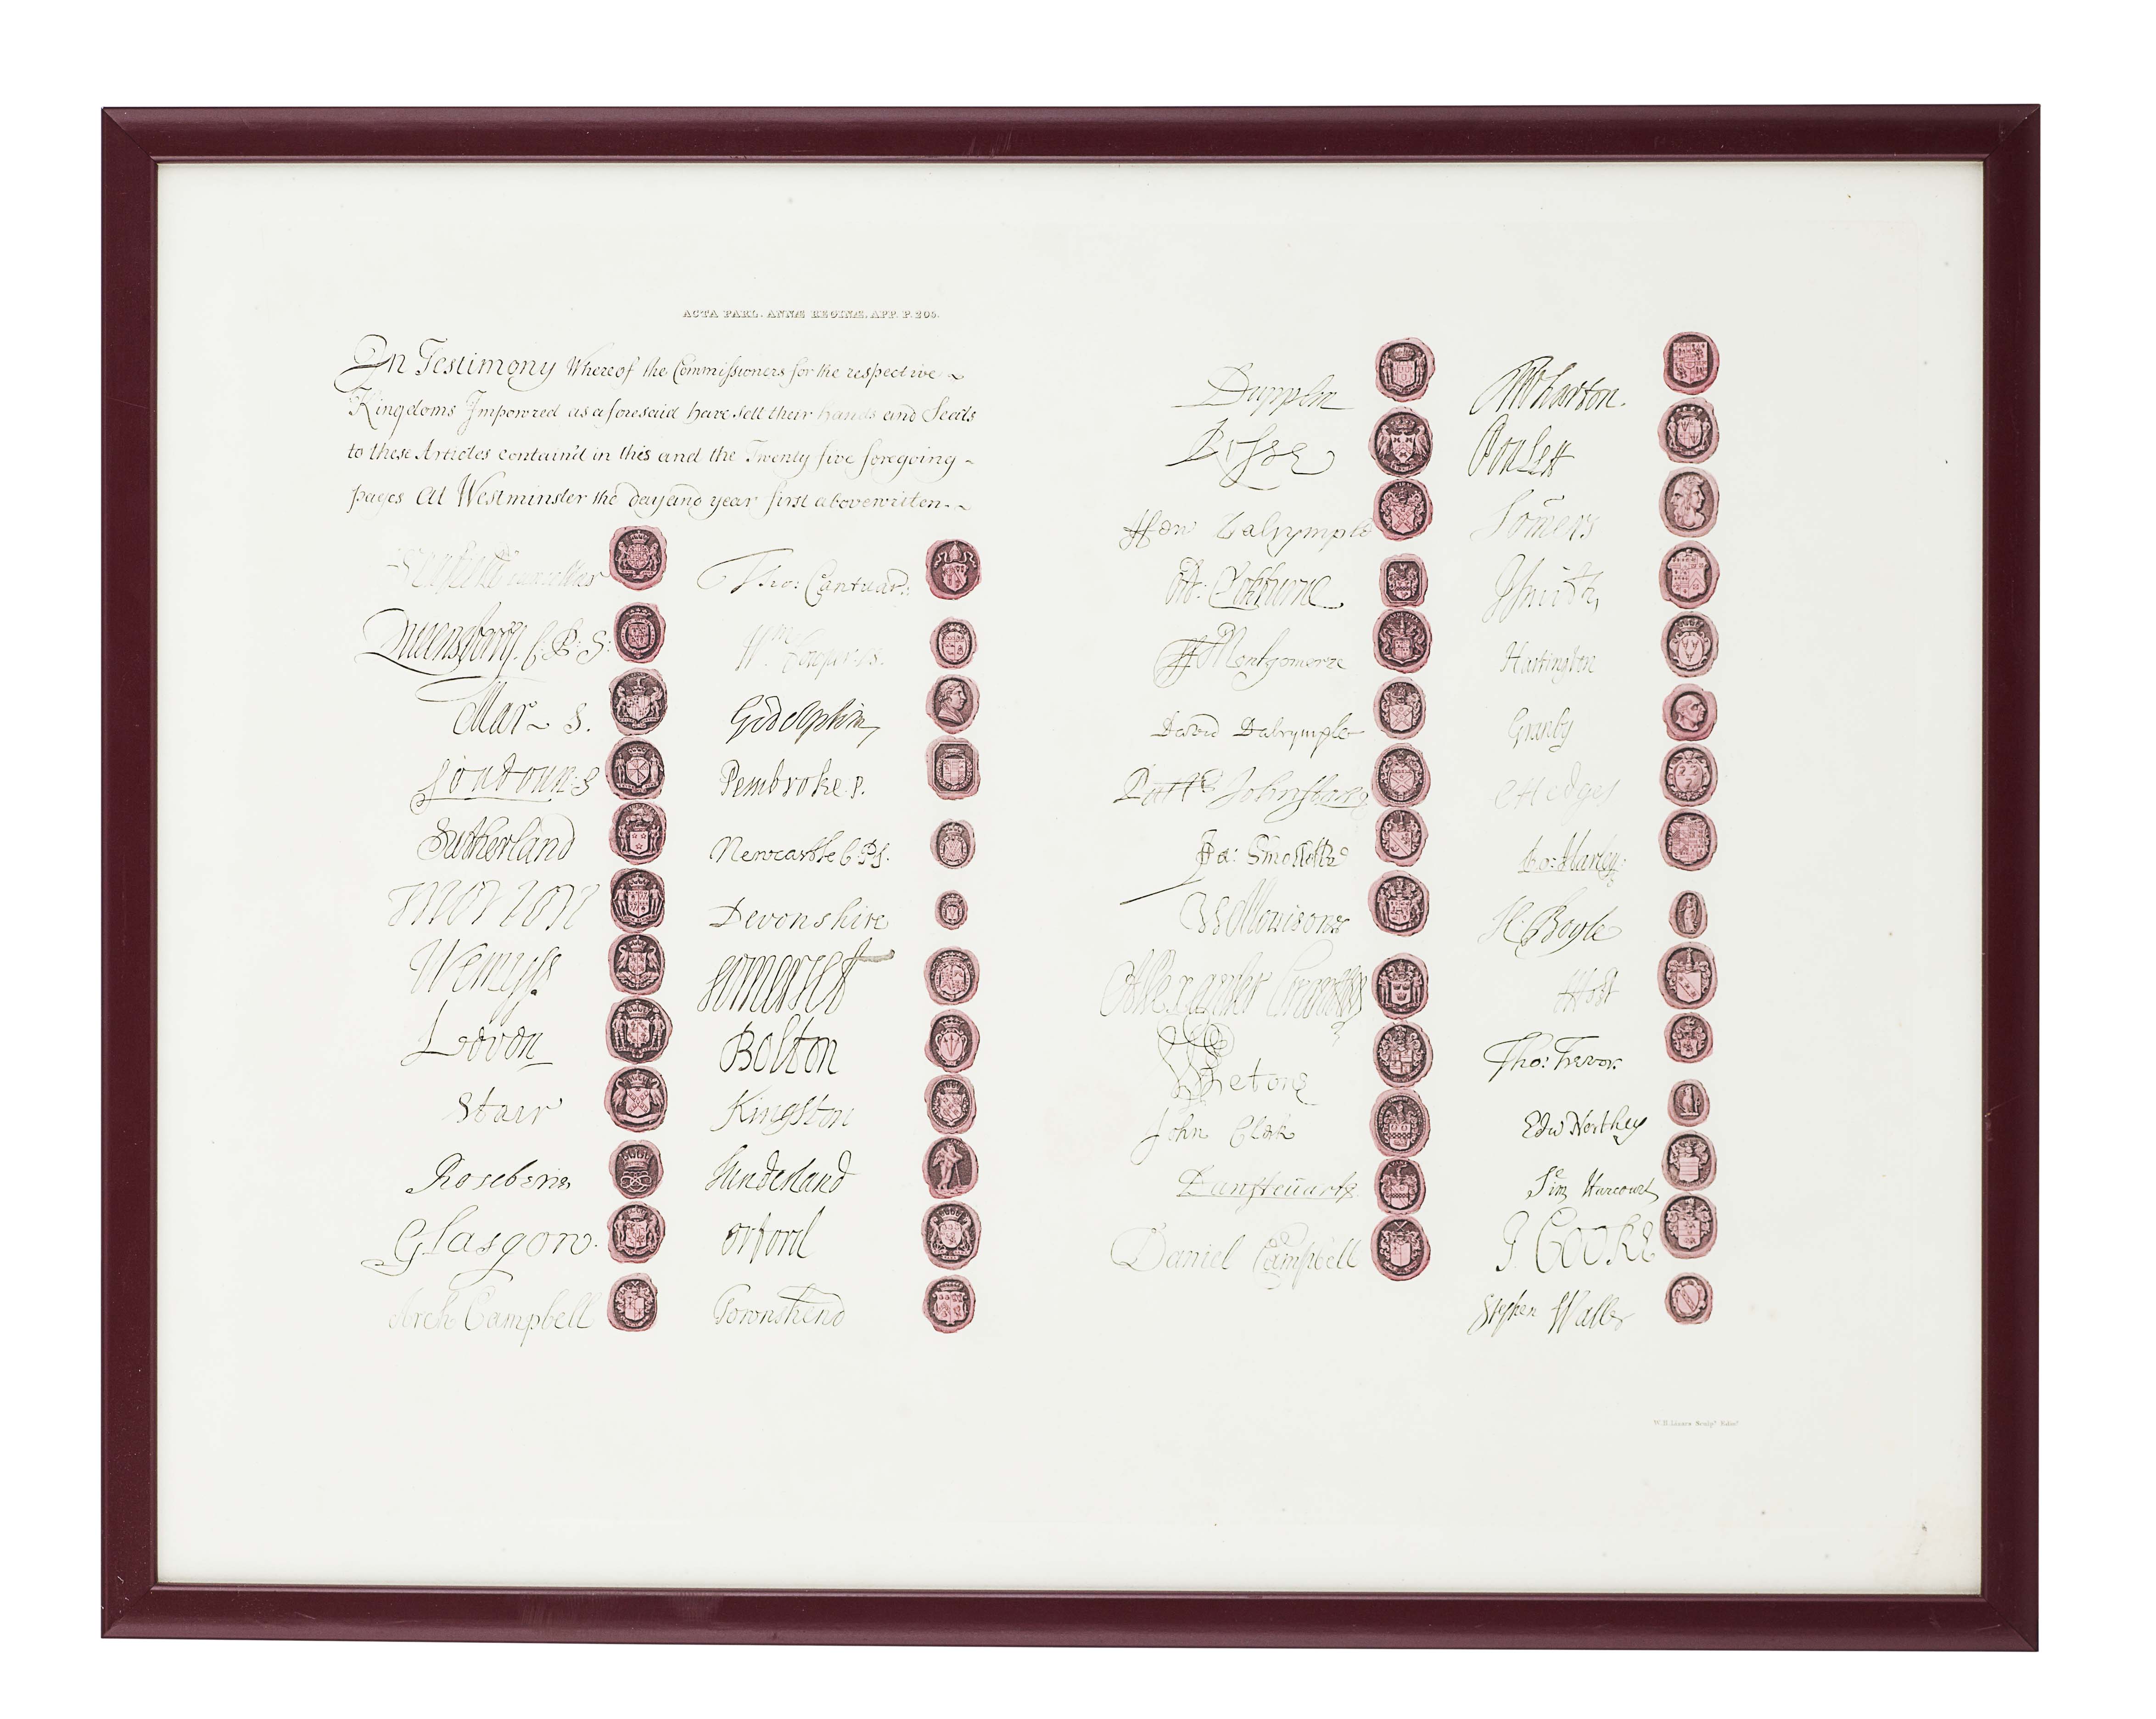 ACTA PARL. ANNÆ REGINÆ. APP. P. 205.
In Testimony Whereof the Commissioners for the respective
Kingdoms Impowred as aforesaid have sett their hands and Seals
to these Articles contain'd in this and the Twenty five foregoing
pages At Westminster the day and year first abovewriten.
Queensberry C. P. S.
Mar S.
Loudoun S
Sutherland
Morton
Wemyss
Leven
Stair
Roseberie
Glasgow
Arch Campbell
Tho: Cantuar:
Godolphin
Pembroke. P.
Newcastle C P S.
Devonshire
Somerset
Bolton
Kingston
Sunderland
Orford
Townshend
Dupplin
Rosse
Hew Dalrymple
Ad: Cokburne
Montgomerie
David Dalrymple
Patt: Johnstoune
Ja: Smollett
W Morisone
Alexander
Setone
John Clerk
Dan Steuart
Daniel Campbell
Wharton.
Poulett
Somers
J Smith,
Hartington
Granby
C Hedges
Ro: Harley
H. Boyle
Holt
Tho: Trevor.
Edw Northey
Sim Harcourt
J. Cooke
Stephen Waller